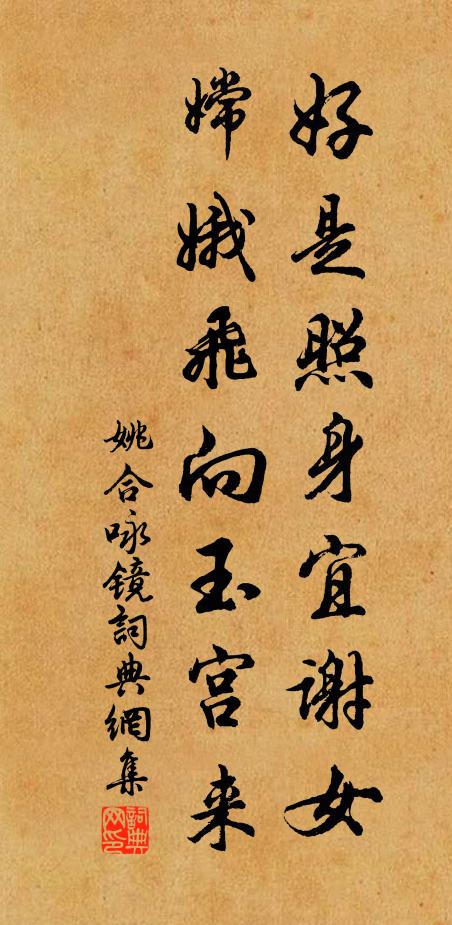 好是照身宜谢女
嫦娥飛向玉宫来
姚合咏镜詞典網集
詞典網印